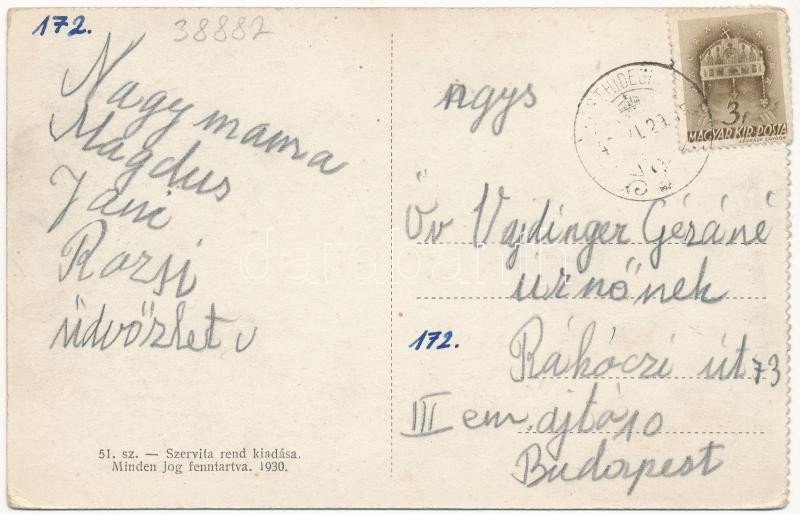 172.
38882
Nagymama
Magdus
Jani
Rozsi
üdvözlet
51. sz. — Szervita rend kiadása.
Minden jog fenntartva. 1930.
ngys
3f
MAGYAR KIR. POSTA
Öv Vajdinger Géráné
úrnőnek
172.
Rákóczi út 73
III em ajtó 10
Budapest
darabanth